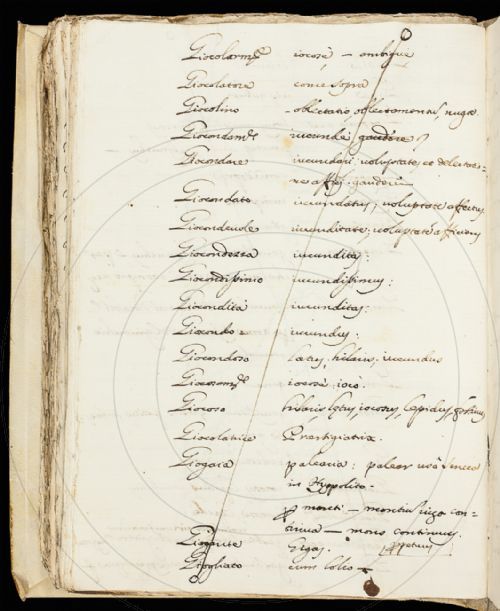 Giocolarm.te iocosè – ambigue
Giocolatore come sopra
Giocolino oblectatio, oblectamentū, nugæ
Giocondam.te iucundè gaudère
Giocondare iucundari, voluptate, ac delectatio-
ne affici, gaudere
Giocondato iucundatus; voluptate affectus
Giocondevole iucunditate, voluptate afficiens
Giocondezza iucunditas:
Giocondissimo iucundissimus:
Giocondità iucunditas:
Giocondo: iucundus:
Giocondoso lætus, hilaris, iucundus
Giocosam.te iocosè, iocò:
Giocoso hilaris, lætus, iocosus, lepidus, festivus
Giocolatrice Præstigiatrix.
Giogaia palearia: palear usò Seneca
in Hyppolito.
monti – montium iuga con-
tinua – mons continuus.
Gigante Gigas. perpetuus
Giogliato cum lolio